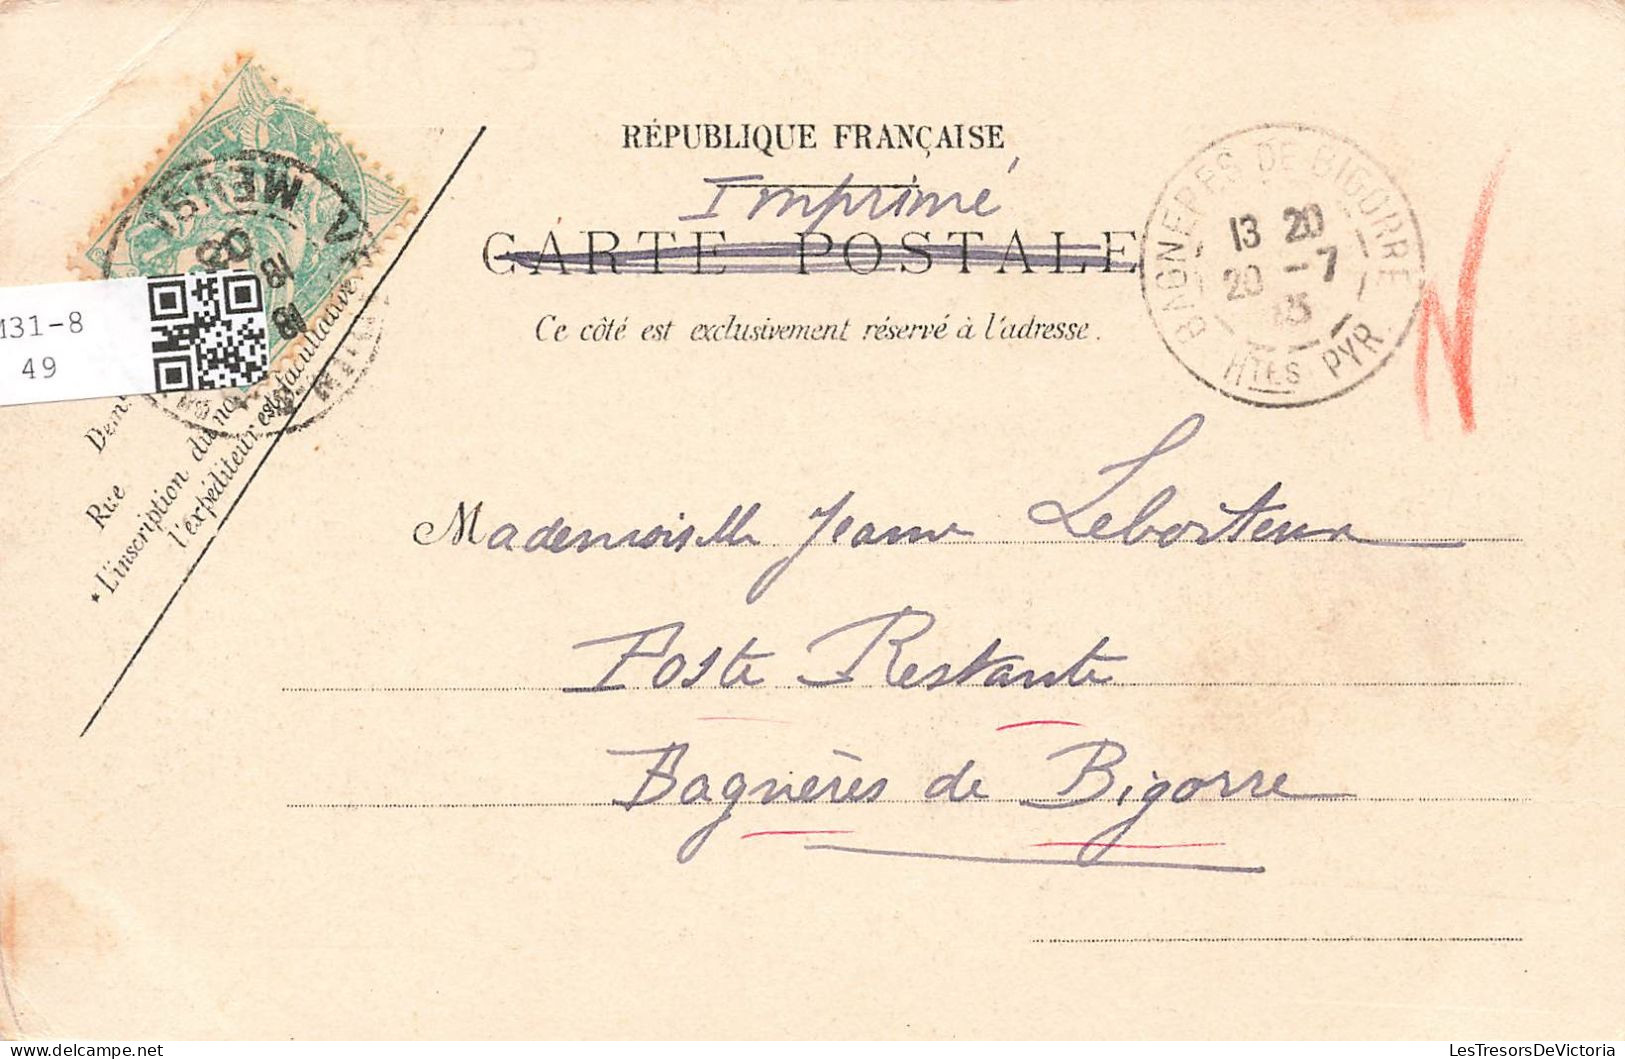 RÉPUBLIQUE FRANÇAISE
Imprimé
CARTE POSTALE
Ce côté est exclusivement réservé à l'adresse.
BAGNERES DE BIGORRE
13 20
20 -7
HTES PYR.
N
MEUS
03
18
M31-8
49
Rue
*L'inscription du
l'expéditeur est facultative
Mademoiselle Jeanne Leborteux
Poste Restante
Bagnères de Bigorre
LesTresorsDeVictoria
les-tresors-de-victoria.delcampe.net